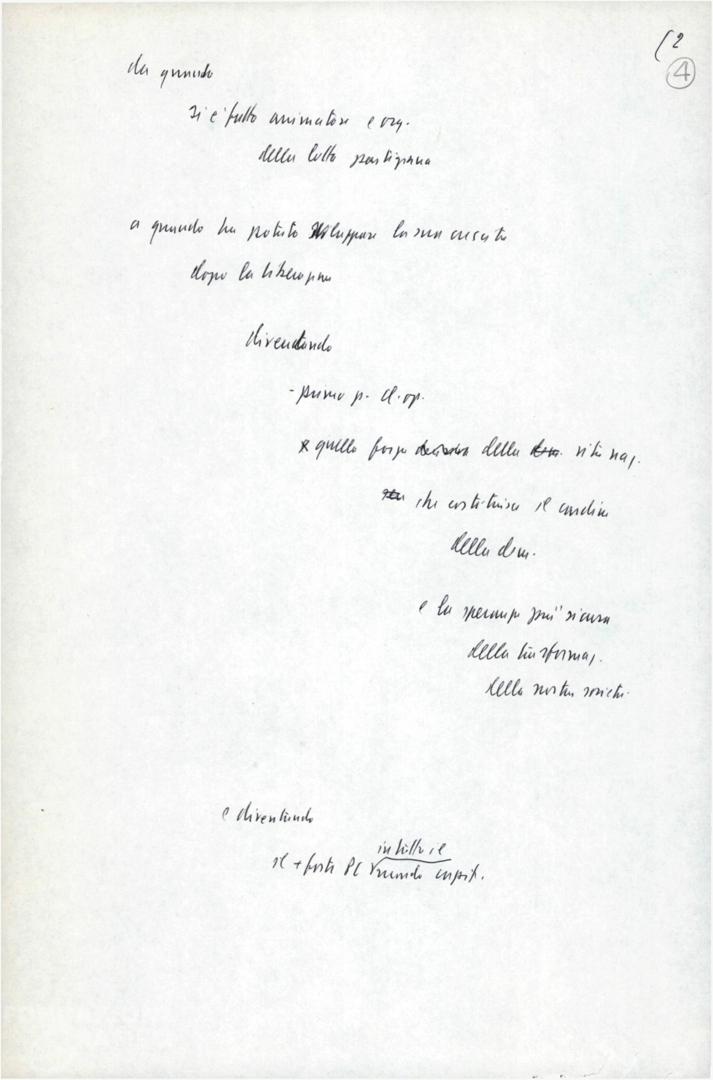 (2
4
da quando
si è fatto animatore e org.
della lotta partigiana
a quando ha potuto sviluppare la sua crescita
dopo la liberazione
diventando
- primo p. d. op.
e quella forza decisiva della dem. vita naz.
che costituisce il cardine
della dem.
e la speranza più sicura
della trasformaz.
della nostra società.
e diventando
in tutto il
il + forte PC mondo capit.